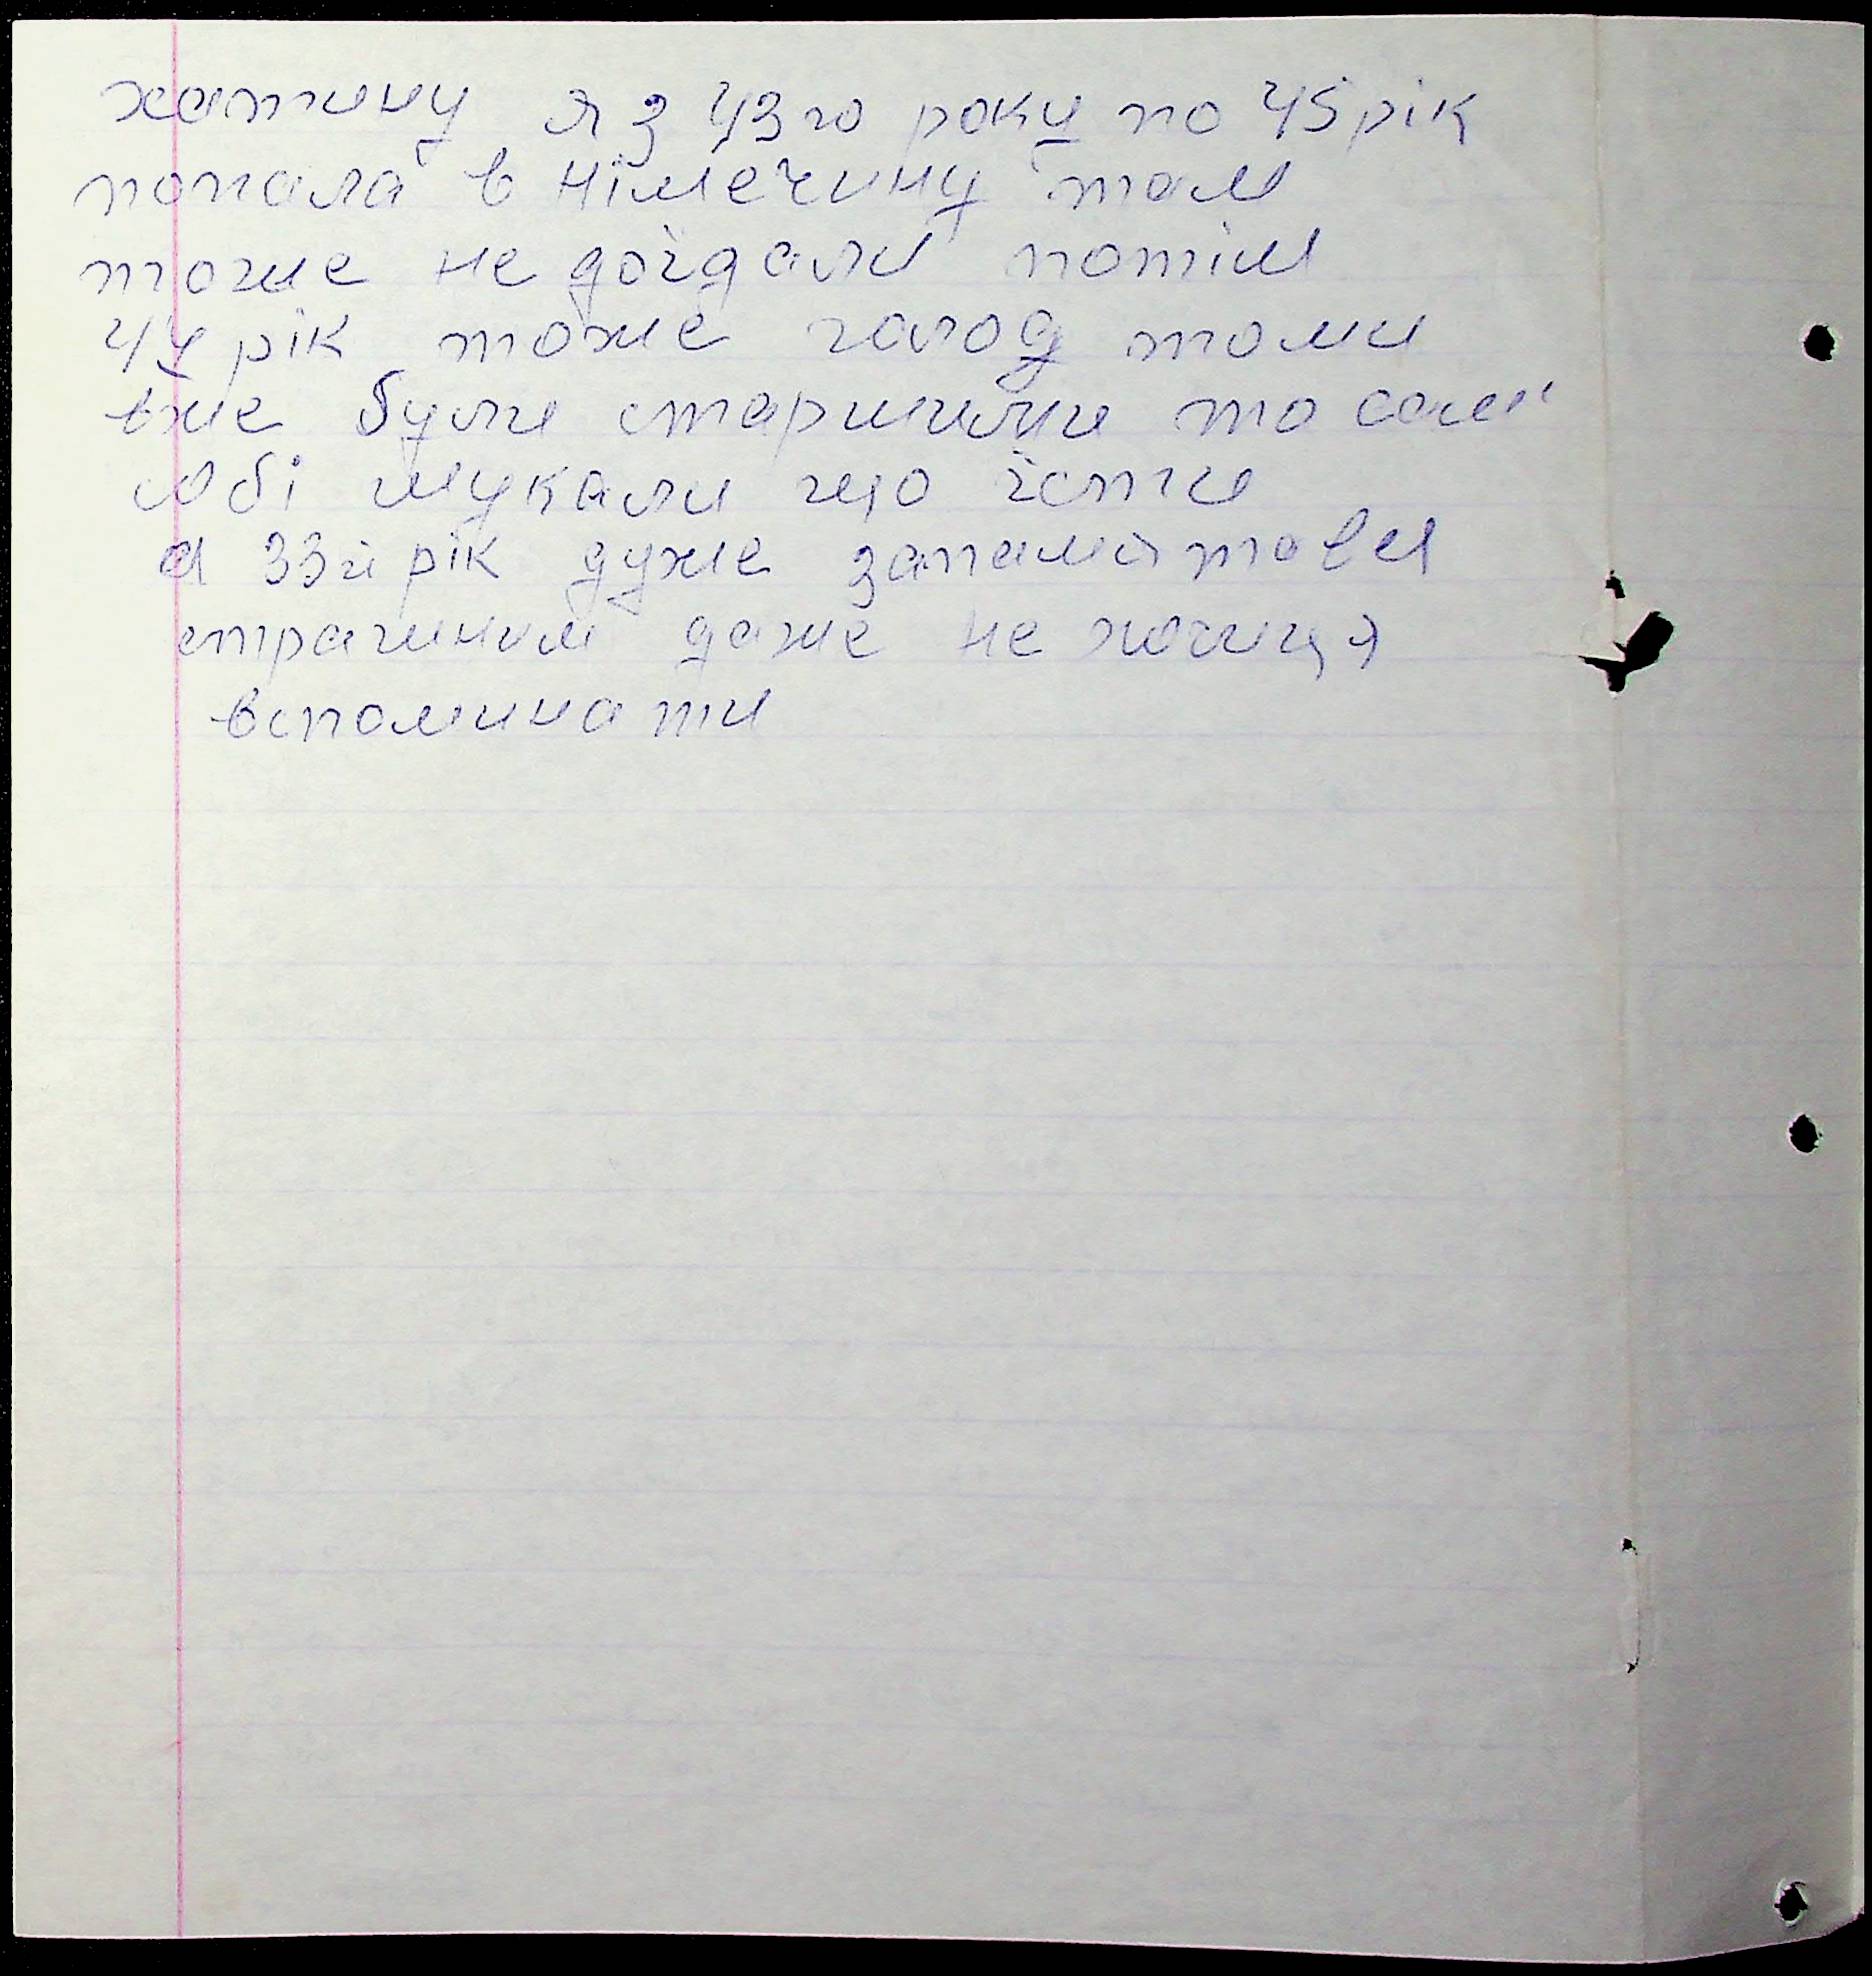 хатину я з 43го року по 45 рік
попала в німечину там
тоже не доїдали потім
47 рік тоже голод томи
вже були старшими то сами
собі шукали що їсти
а 33й рік дуже
страшним даже не хочиця
вспоминати